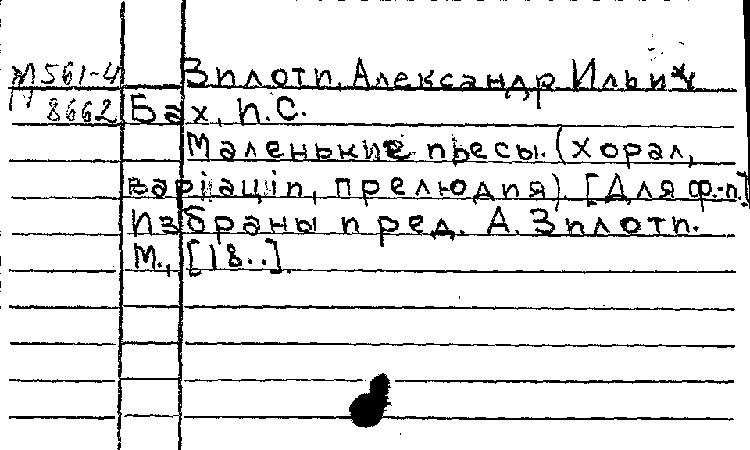 М561-4 Зилоти, Александр Ильич
8662 Бах, И.С.
Маленькие пьесы. (Хорал,
варiацiи, прелюдия) [Для ф.-п.]
Избраны и ред. А. Зилоти.
М., [18..].